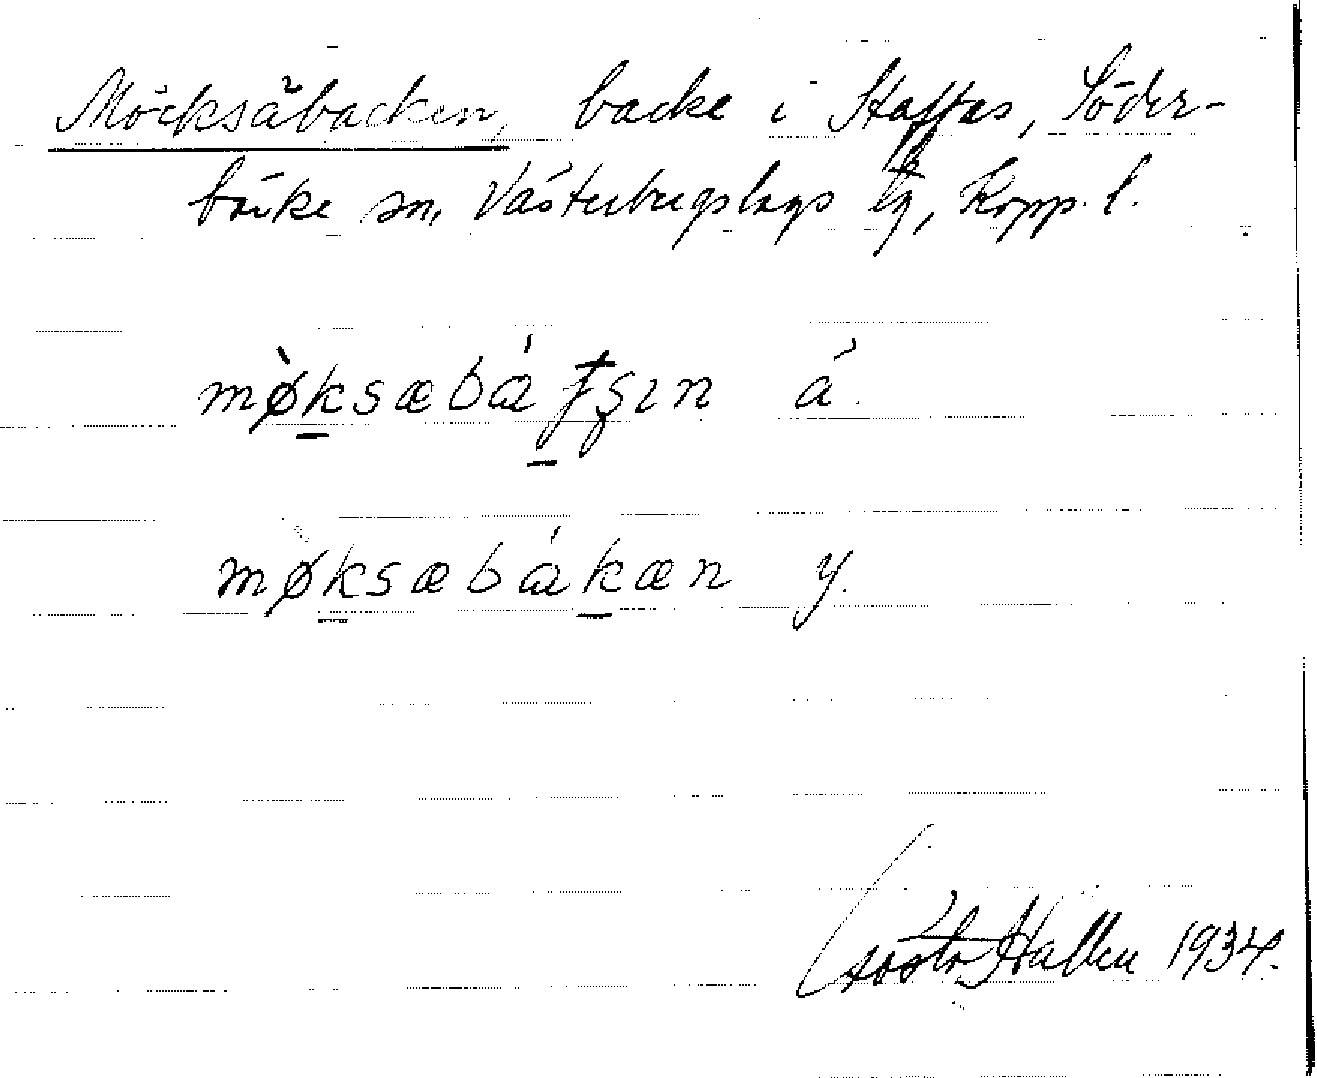 Möcksåbacken, backe i Staffas, Söder-
bärke sn, Västerbergslags tg, Kopp. l.
mø̀ksæbá ꞙʂın å.
mø̀ksæbákæn y.
Gösta Hallen 1934.